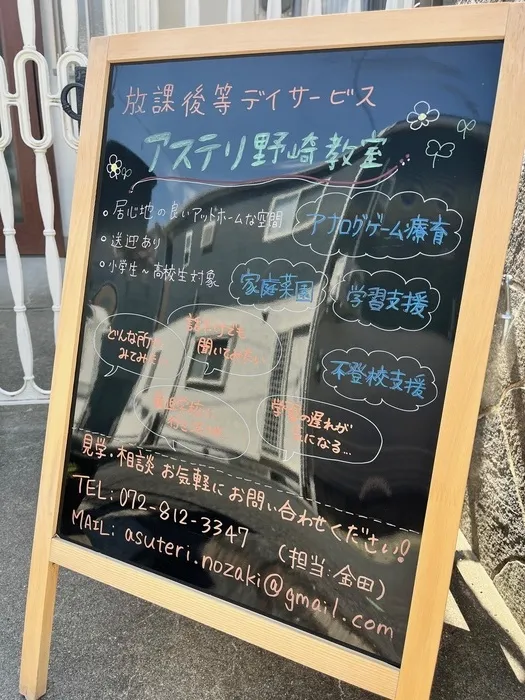 放課後等デイサービス
アステリ野崎教室
居心地の良いアッドホームな空間
送迎あり
小学生～高校生対象
アナログゲーム療育
家庭菜園
学習支援
不登校支援
どんな所か
みてみたい
話だけでも
聞いてみたい
学習の遅れが
気になる…
見学・相談 お気軽にお問い合わせください!
TEL: 072-812-3347
(担当:金田)
MAIL: asuteri.nozaki@gmail.com